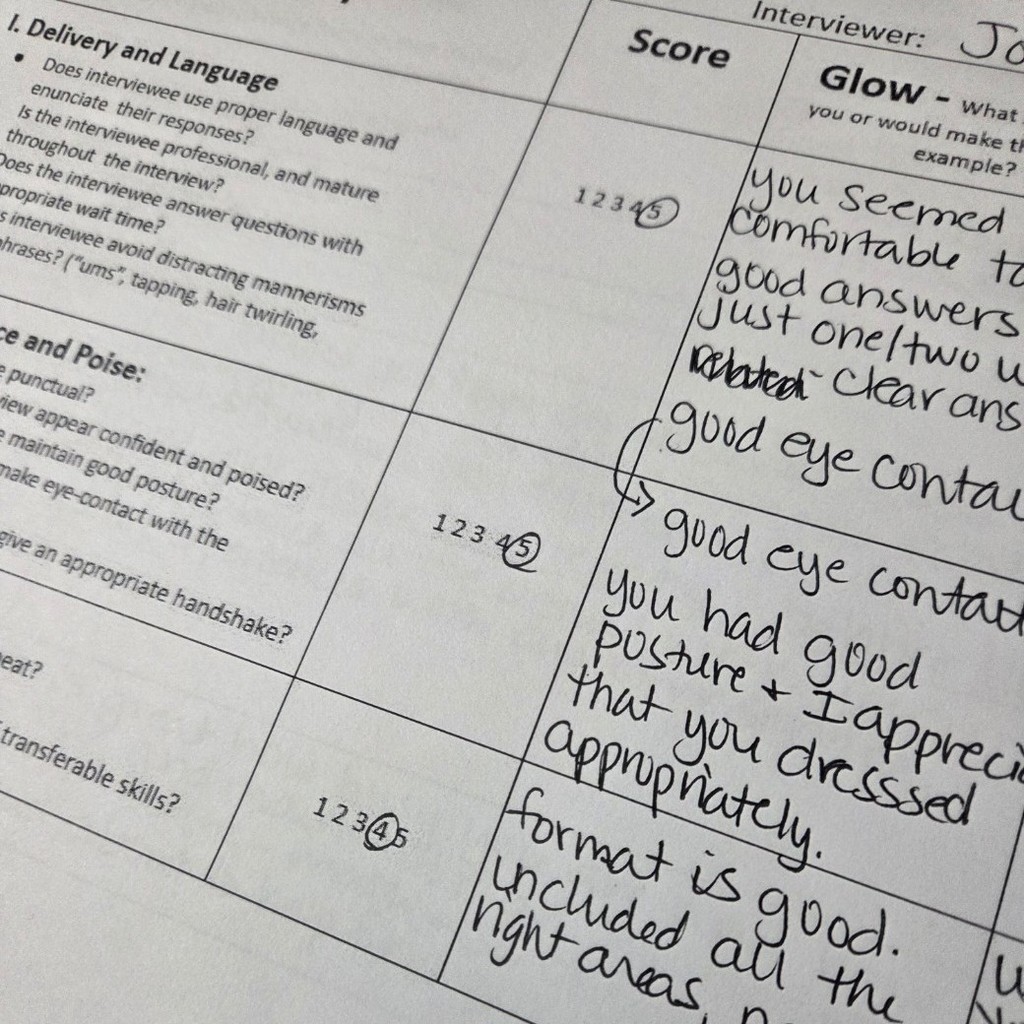 Interviewer: Jo
Score
Glow - What
you or would make th
example?
I. Delivery and Language
• Does interviewee use proper language and
enunciate their responses?
Is the interviewee professional, and mature
throughout the interview?
Does the interviewee answer questions with
propriate wait time?
s interviewee avoid distracting mannerisms
phrases? ("ums", tapping, hair twirling,
1 2 3 4 5
you seemed
comfortable to
good answers
just one/two w
clear ans
good eye contac
ce and Poise:
e punctual?
view appear confident and poised?
e maintain good posture?
make eye-contact with the
give an appropriate handshake?
1 2 3 4 5
good eye contact
you had good
posture + I apprecia
that you dresssed
appropriately.
eat?
transferable skills?
1 2 3 4 5
format is good.
uncluded all the
right areas,